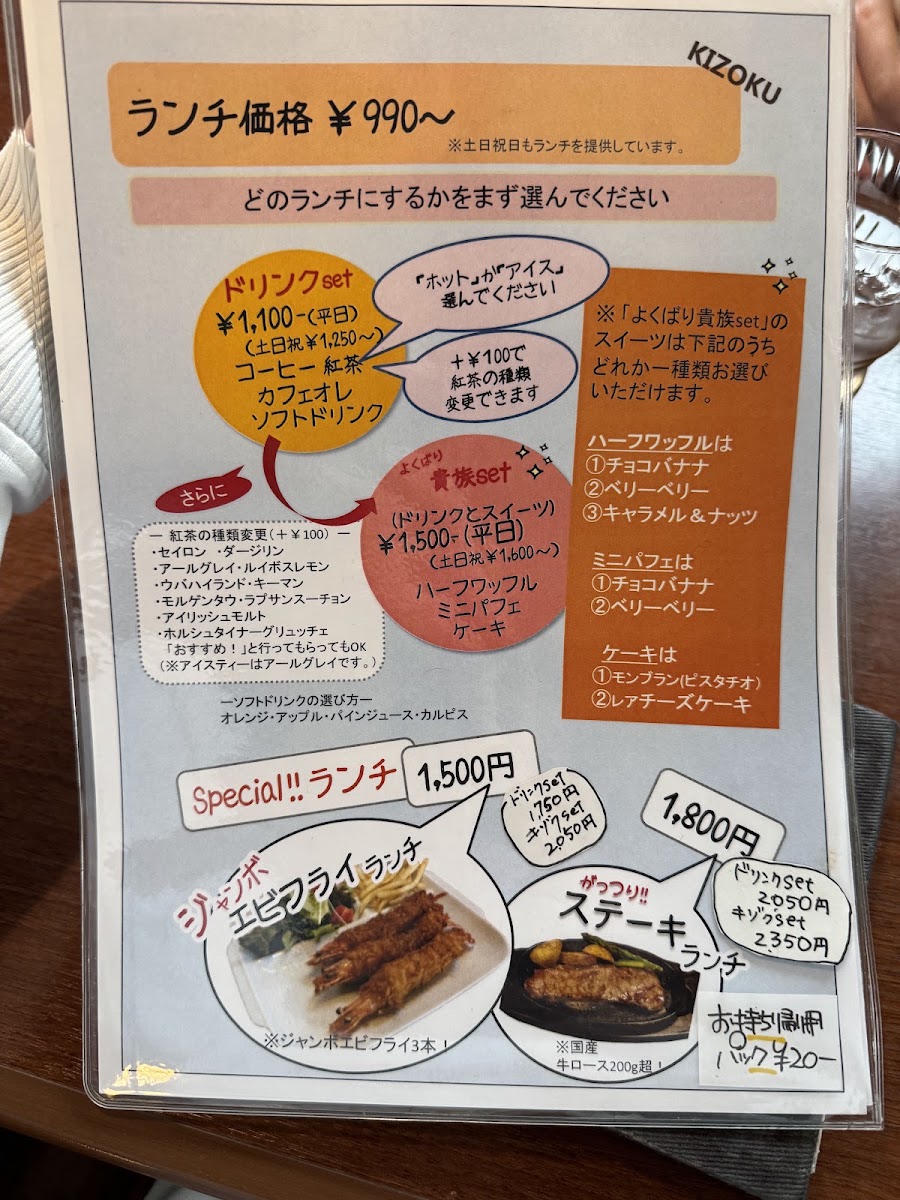 KIZOKU
ランチ価格 ¥990～
※土日祝日もランチを提供しています。
どのランチにするかをまず選んでください
ドリンクset
¥1,100-(平日)
(土日祝¥1,250～)
コーヒー 紅茶
カフェオレ
ソフトドリンク
『ホット』か『アイス』
選んでください
＋¥100で
紅茶の種類
変更できます
さらに
よくばり
貴族set
(ドリンクとスイーツ)
¥1,500-(平日)
(土日祝¥1,600～)
ハーフワッフル
ミニパフェ
ケーキ
※「よくばり貴族set」の
スイーツは下記のうち
どれか一種類お選び
いただけます。
ハーフワッフルは
①チョコバナナ
②ベリーベリー
③キャラメル＆ナッツ
ミニパフェは
①チョコバナナ
②ベリーベリー
ケーキは
①モンブラン(ピスタチオ)
②レアチーズケーキ
― 紅茶の種類変更(＋¥100) ―
・セイロン ・ダージリン
・アールグレイ・ルイボスレモン
・ウバハイランド・キーマン
・モルゲンタウ・ラプサンスーチョン
・アイリッシュモルト
・ホルシュタイナーグリュッチェ
「おすすめ！」と行ってもらってもOK
(※アイスティーはアールグレイです。)
―ソフトドリンクの選び方―
オレンジ・アップル・パインジュース・カルピス
Special!! ランチ
1,500円
ドリンクset
1,750円
キゾクset
2,050円
ジャンボ
エビフライランチ
※ジャンボエビフライ3本！
1,800円
ドリンクset
2,050円
キゾクset
2,350円
がっつり!!
ステーキ
ランチ
※国産
牛ロース200g超！
お持ち帰用
パック ¥20-